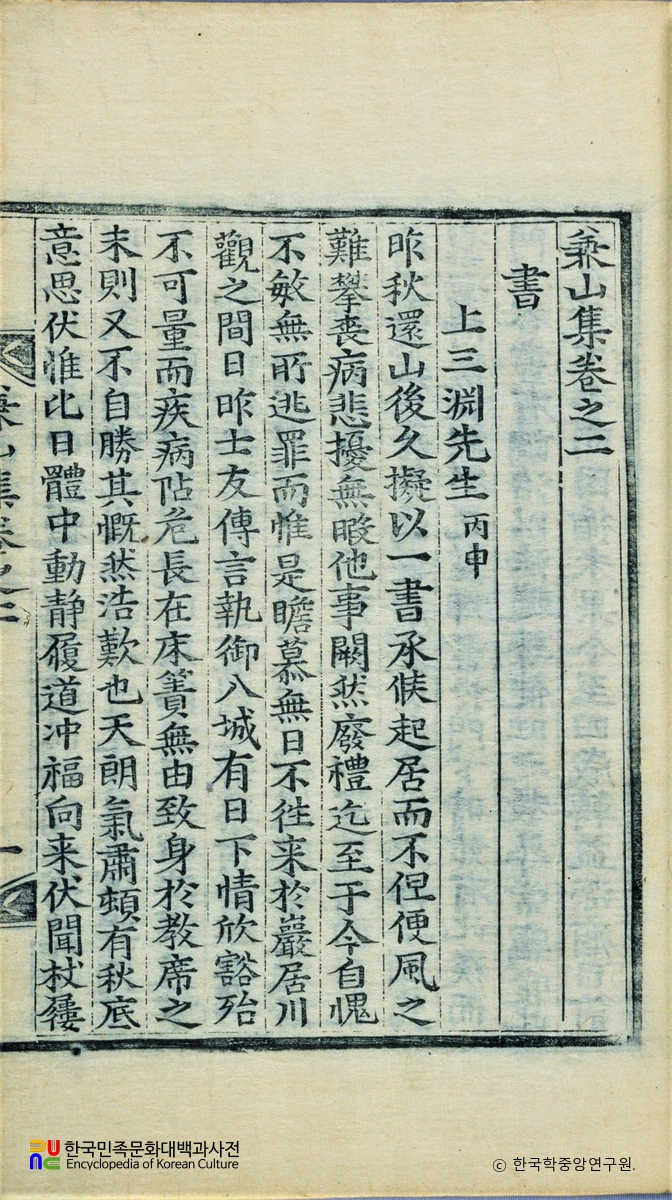 兼山集卷之二
書
上三淵先生 丙申
昨秋還山後久擬以一書承候起居而不但便風之
難攀喪病悲擾無暇他事闕然廢禮迄至于今自愧
不敏無所逃罪而惟是瞻慕無日不往来於巖居川
觀之間日昨士友傳言執御入城有日下情欣豁殆
不可量而疾病阽危長在床簀無由致身於教席之
末則又不自勝其慨然浩歎也天朗氣肅頓有秋底
意思伏惟此日體中動靜履道冲福向来伏聞杖屨
兼山集卷之二
一
한국민족문화대백과사전
Encyclopedia of Korean Culture
ⓒ 한국학중앙연구원.